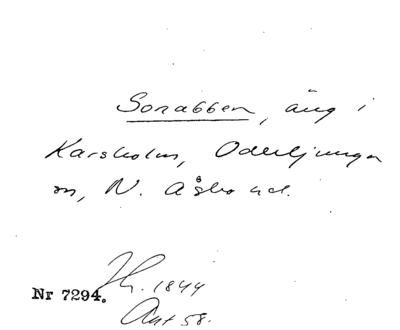 Sonabben, äng i
Karsholm, Oderljunga
sn, N. Åsbo hd.
Nr 7294.
1844
Akt 58.